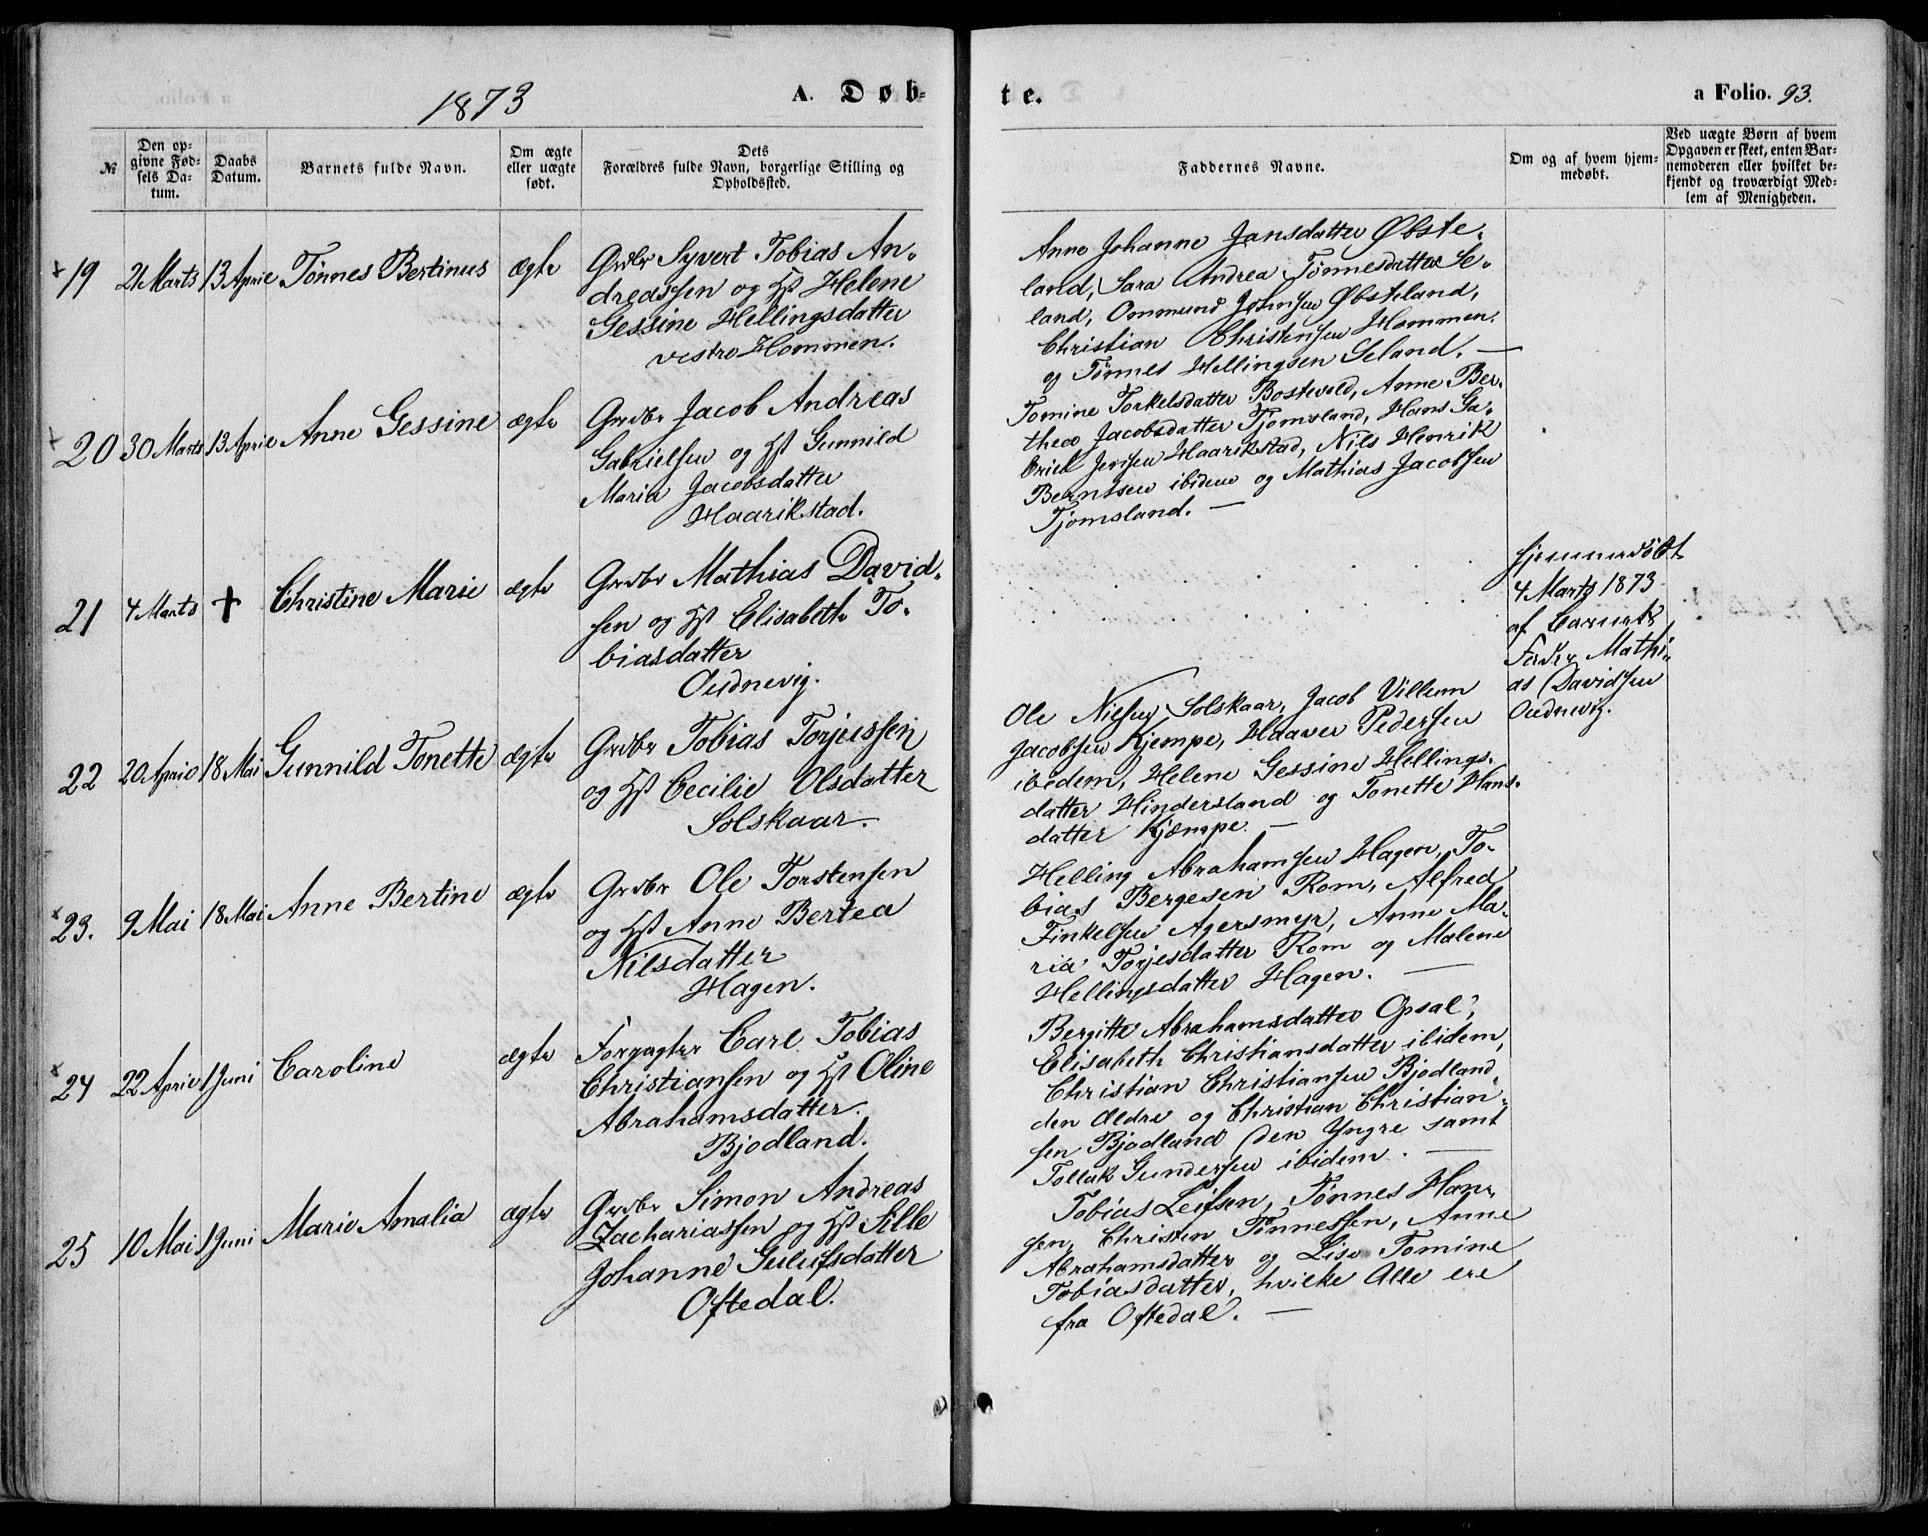 1873
A. Døb-
te.
a Folio. 93.
№
Den op-
givne Fød-
sels Da-
tum.
Daabs
Datum.
Barnets fulde Navn.
Om ægte
eller uægte
født.
Dets
Forældres fulde Navn, borgerlige Stilling og
Opholdssted.
Faddernes Navne.
Om og af hvem hjem-
medøbt.
Ved uægte Børn af hvem
Opgaven er skeet, enten Bar-
nemoderen eller hvilket be-
kjendt og troværdigt Med-
lem af Menigheden.
19 21 Marts 13 April Tønnes Bertinus ægte
Grdbr Syvert Tobias An-
dreassen og Hst Helene
Gessine Hellingsdatter
vestre Hommen.
Anne Johanne Jansdatter Øbste-
land, Sara Andrea Tønnesdatter Se-
land, Ommund Johnsen Øbsteland,
Christian Christensen Hommen
og Tønnes Hellingsen Seland. —
20 30 Marts 13 April Anne Gessine ægte
Grdbr Jacob Andreas
Gabrielsen og Hst Gunnild
Maria Jacobsdatter
Haarikstad.
Tomine Torkelsdatter Bostvold, Anne Ber-
thea Jacobsdatter Tjomsland, Hans Ga-
briel Jensen Haarikstad, Nils Henrik
Berntsen ibidem og Mathias Jacobsen
Tjomsland. —
21 4 Marts + Christine Marie ægte
Grdbr Mathias David-
sen og Hst Elisabeth To-
biasdatter
Oudnevig.
hjemmedøbt
4 Marts 1873
af Barnets
Fader Mathi-
as Davidsen
Oudnevig.
22 20 April 18 Mai Gunnild Tonette ægte
Grdbr Tobias Torjussen
og Hst Cecilie Olsdatter
Solskaar.
Ole Nielsen Solskaar, Jacob Villum
Jacobsen Kjempe, Haaver Pedersen
ibidem, Helene Gessine Hellings-
datter Hindersland og Tonette Hans-
datter Kjæmpe. —
23. 9 Mai 18 Mai Anne Bertine ægte
Grdbr Ole Torstensen
og Hst Anne Bertea
Nilsdatter
Hagen.
Helling Abrahamsen Hagen, To-
bias Bergesen Rom, Alfred
Finkelsen Agersmyr, Anne Ma-
ria Torjesdatter Rom og Malene
Hellingsdatter Hagen. —
24 22 April 1 Juni Caroline ægte
Forpagter Carl Tobias
Christiansen og Hst Oline
Abrahamsdatter
Bjodland.
Bergitte Abrahamsdatter Opsal,
Elisabeth Christiansdatter ibidem,
Christian Christiansen Bjodland
den Ældre og Christian Christian-
sen Bjodland den Yngre samt
Tollak Gundersen ibidem. —
25 10 Mai 1 Juni Marie Amalia ægte
Grdbr Simon Andreas
Zachariassen og Hst Sille
Johanne Gulufsdatter
Oftedal.
Tobias Leifsen, Tønnes Han-
sen, Christen Tønnessen, Anne
Abrahamsdatter og Lise Tomine
Tobiasdatter, hvilke Alle ere
fra Oftedal. —